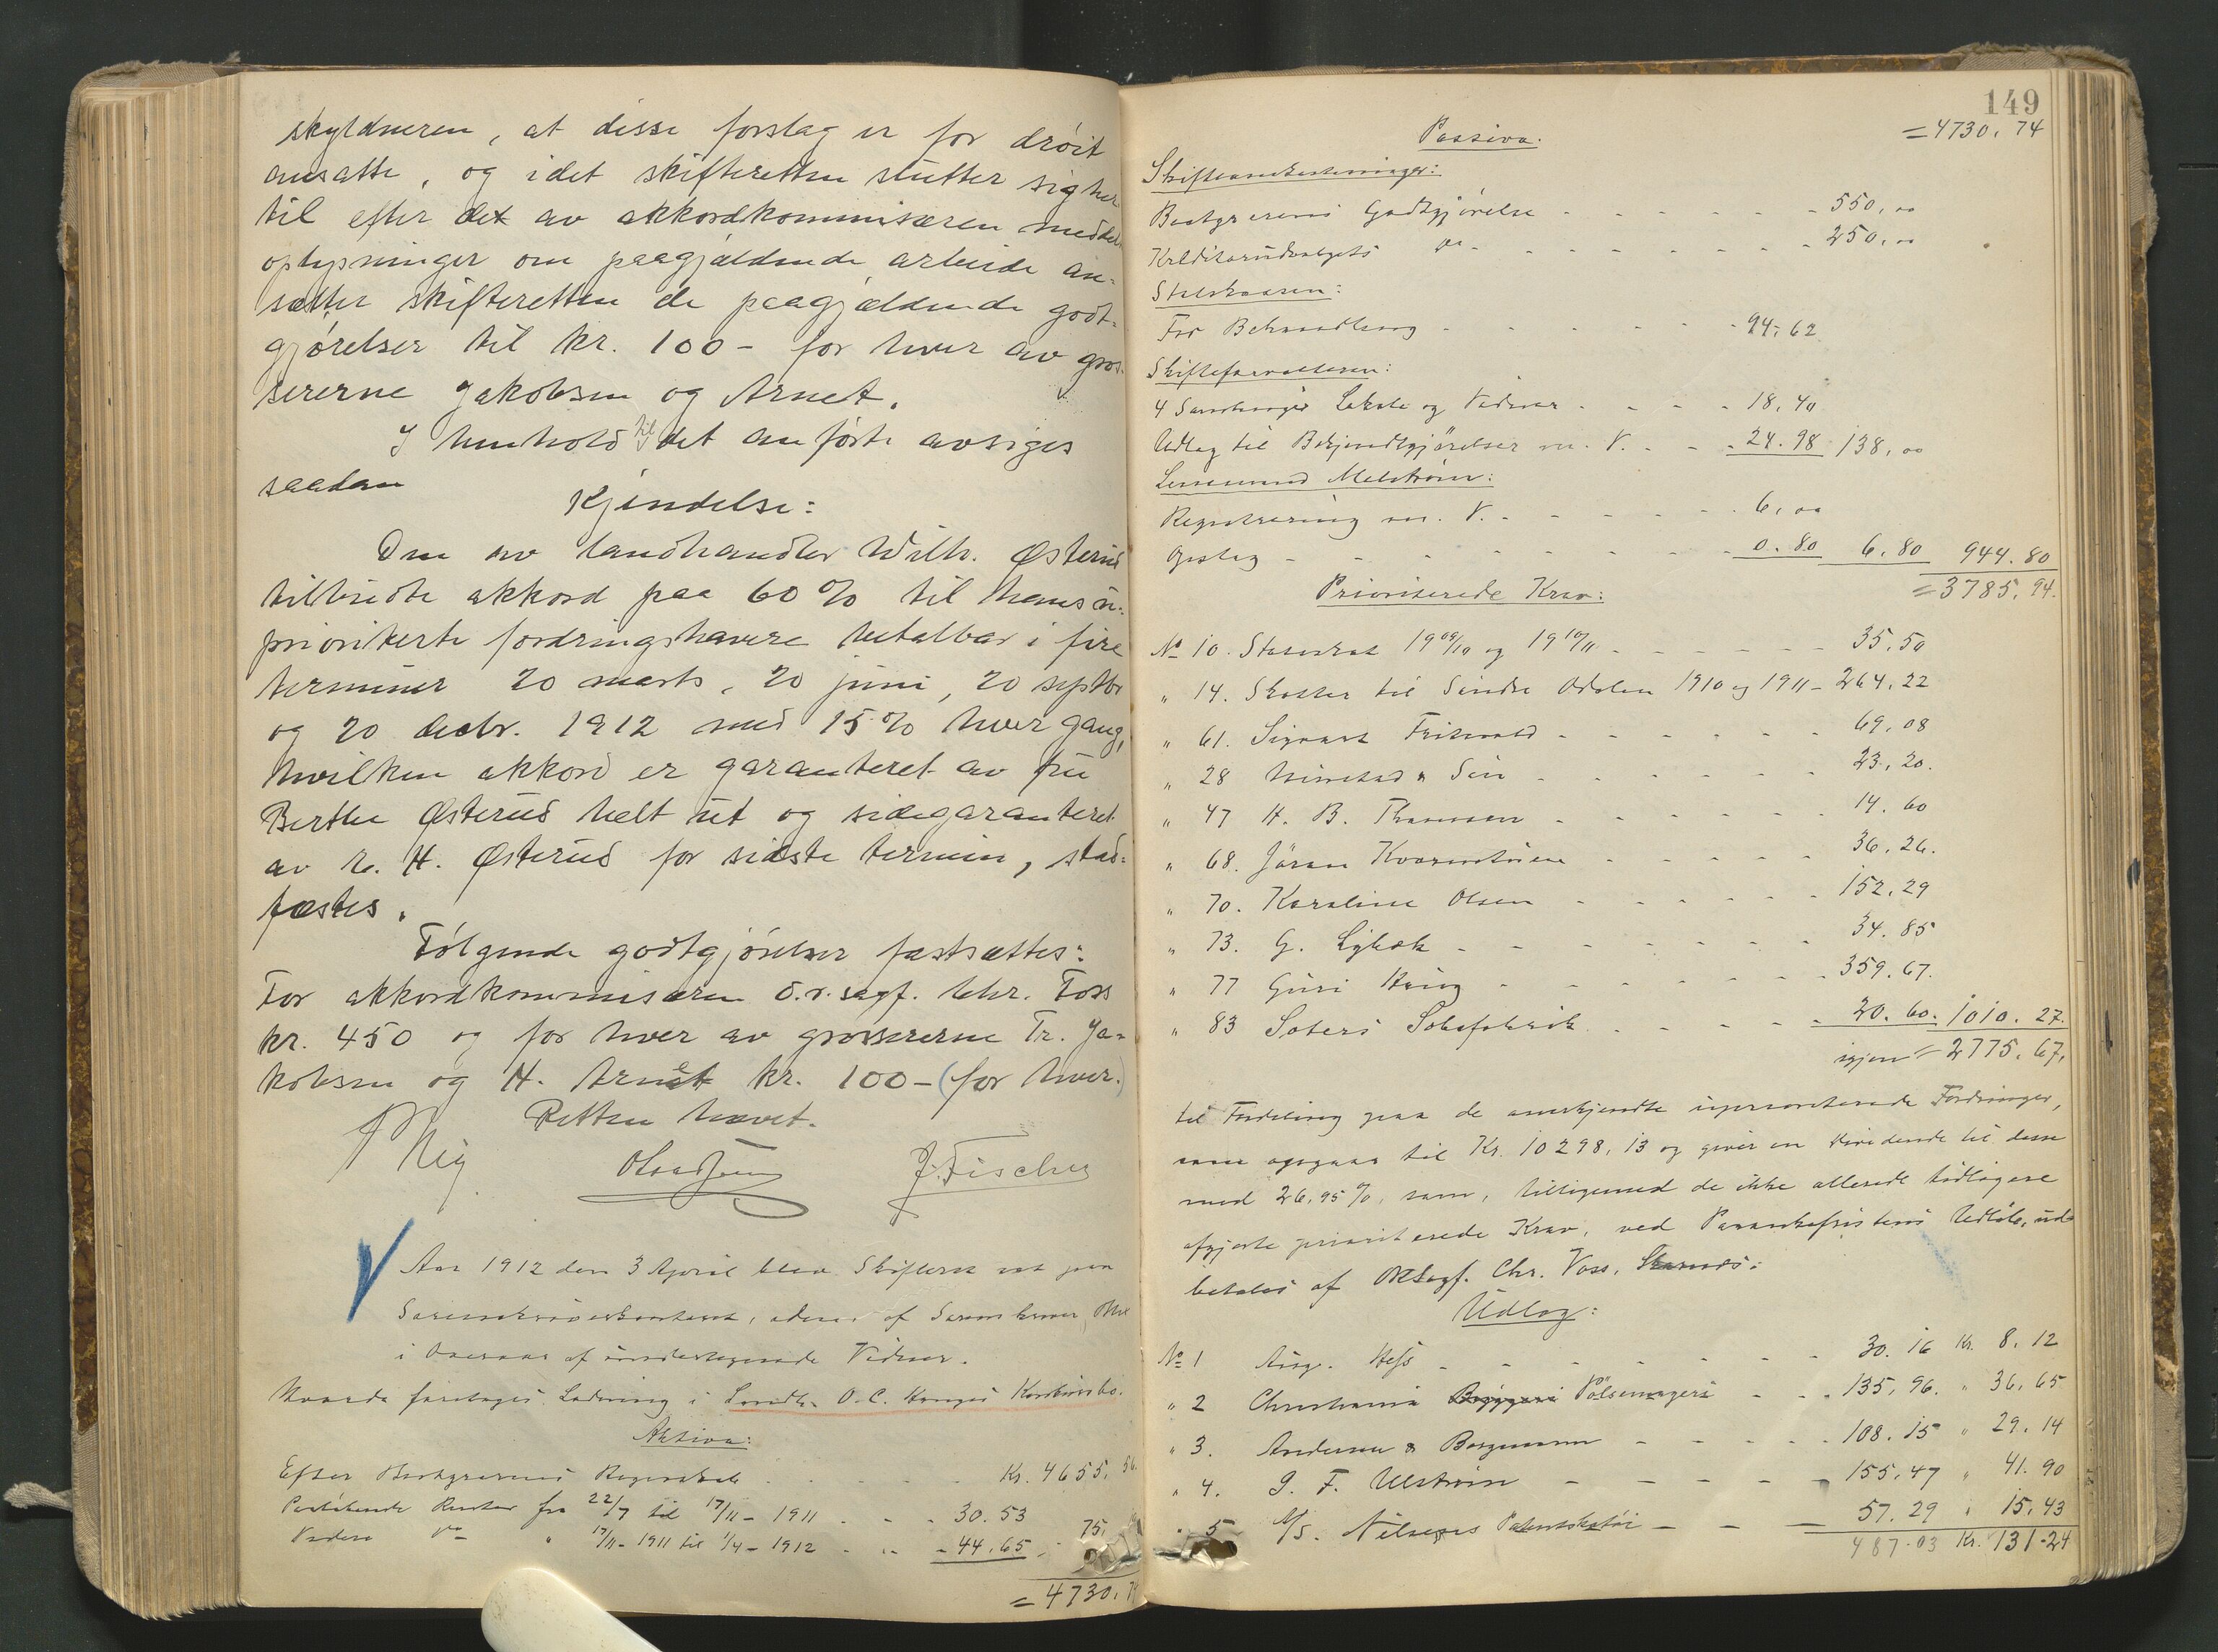 skyldneren, at disse forslag er for drøit
ansatte, og idet skifteretten slutter sig her
til efter det av akkordkommisæren meddelte
oplysninger om paagjældende arbeide an-
sætter skifteretten de paagjældende godt-
gjørelser til kr. 100 - for hver av gros-
sererne Jakobsen og Arnet.
I henhold til det anførte avsiges
saadan
Kjendelse:
Den av landhandler Wilh. Østerud
tilbudte akkord paa 60 % til hans u-
prioriterte fordringshavere betalbar i fire
terminer 20 marts, 20 juni, 20 septbr
og 20 decbr. 1912 med 15 % hver gang,
hvilken akkord er garanteret av fru
Berthe Østerud helt ut og sidegaranteret
av H. Østerud for sidste termin, stad-
fæstes.
Følgende godtgjørelser fastsættes:
For akkordkommisæren o.r.sagf. Chr. Foss
kr. 450 og for hver av grossererne Tr. Ja-
kobsen og H. Arnet kr. 100 - (for hver.)
Retten hævet.
J. Fischer
Aar 1912 den 3 April blev Skifteret sat paa
Sorenskriverkontoret, adm. af Sorenskriver
i Overvær af undertegnede Vidner.
Hvorda foretages Lodning i Landh. O. C. Haugs Konkursbo.
Aktiva:
Efter Bestyrerens Regnskab Kr. 4655,
Paaløbende Renter fra 22/7 til 17/11 - 1911 - 30.53
Videre do " 17/11 - 1911 til 1/4 - 1912 - 44.65 75,
= 4730,
149
Passiva: = 4730.74
Skifteomkostninger:
Bestyrerens Godtgjørelse - 550,00
Kreditorudvalgets do - 250,00
Statskassen:
For Behandling - 94,62
Skifteforvalteren:
4 Samlinger Lokale og Vidner - 18,40
Udlæg til Bekjendtgjørelser m. V. - 24.98 138,00
Lensmand Melstrøm:
Registrering m. V. - 6,00
Opslag - 0.80 6.80 944.80
Prioriterede Krav: = 3785,94.
No 10. Statsskat 1909/10 og 1910/11 - 35,50
" 14. Skatter til Søndre Odalen 1910 og 1911 - 264.22
" 61. Sigvart Fritsvold - 69,08
" 28 & Søn - 23,20.
" 47 H. B. - 14.60
" 68. Jøran - 36,26.
" 70. Karoline Olsen - 152,29
" 73. G. - 34.85
" 77 Guri Haug - 359.67.
" 83 - 20.60. 1010.27.
igjen = 2775.67,
til Fordeling paa de anerkjendte uprioriterede Fordringer,
som opgaar til Kr. 10298,13 og giver en Dividende til disse
med 26,95 %, som, tilligemed de ikke allerede tidligere
afgjorte prioriterede Krav, ved Paaankefristens Udløb, ud-
betales af ORSagf. Chr. Voss,
Udlæg:
No 1 Aug. - 30.16 Kr. 8,12
" 2 Christiania Pølsemageri - 135,96. " 36,65
" 3. Andersen & Bergmann - 108.15 " 29.14
" 4. J. F. Ulstrøm - 155,47 " 41.90
" 5 A/S. Nilsens - 57.29 " 15,43
487.03 Kr. 131-24